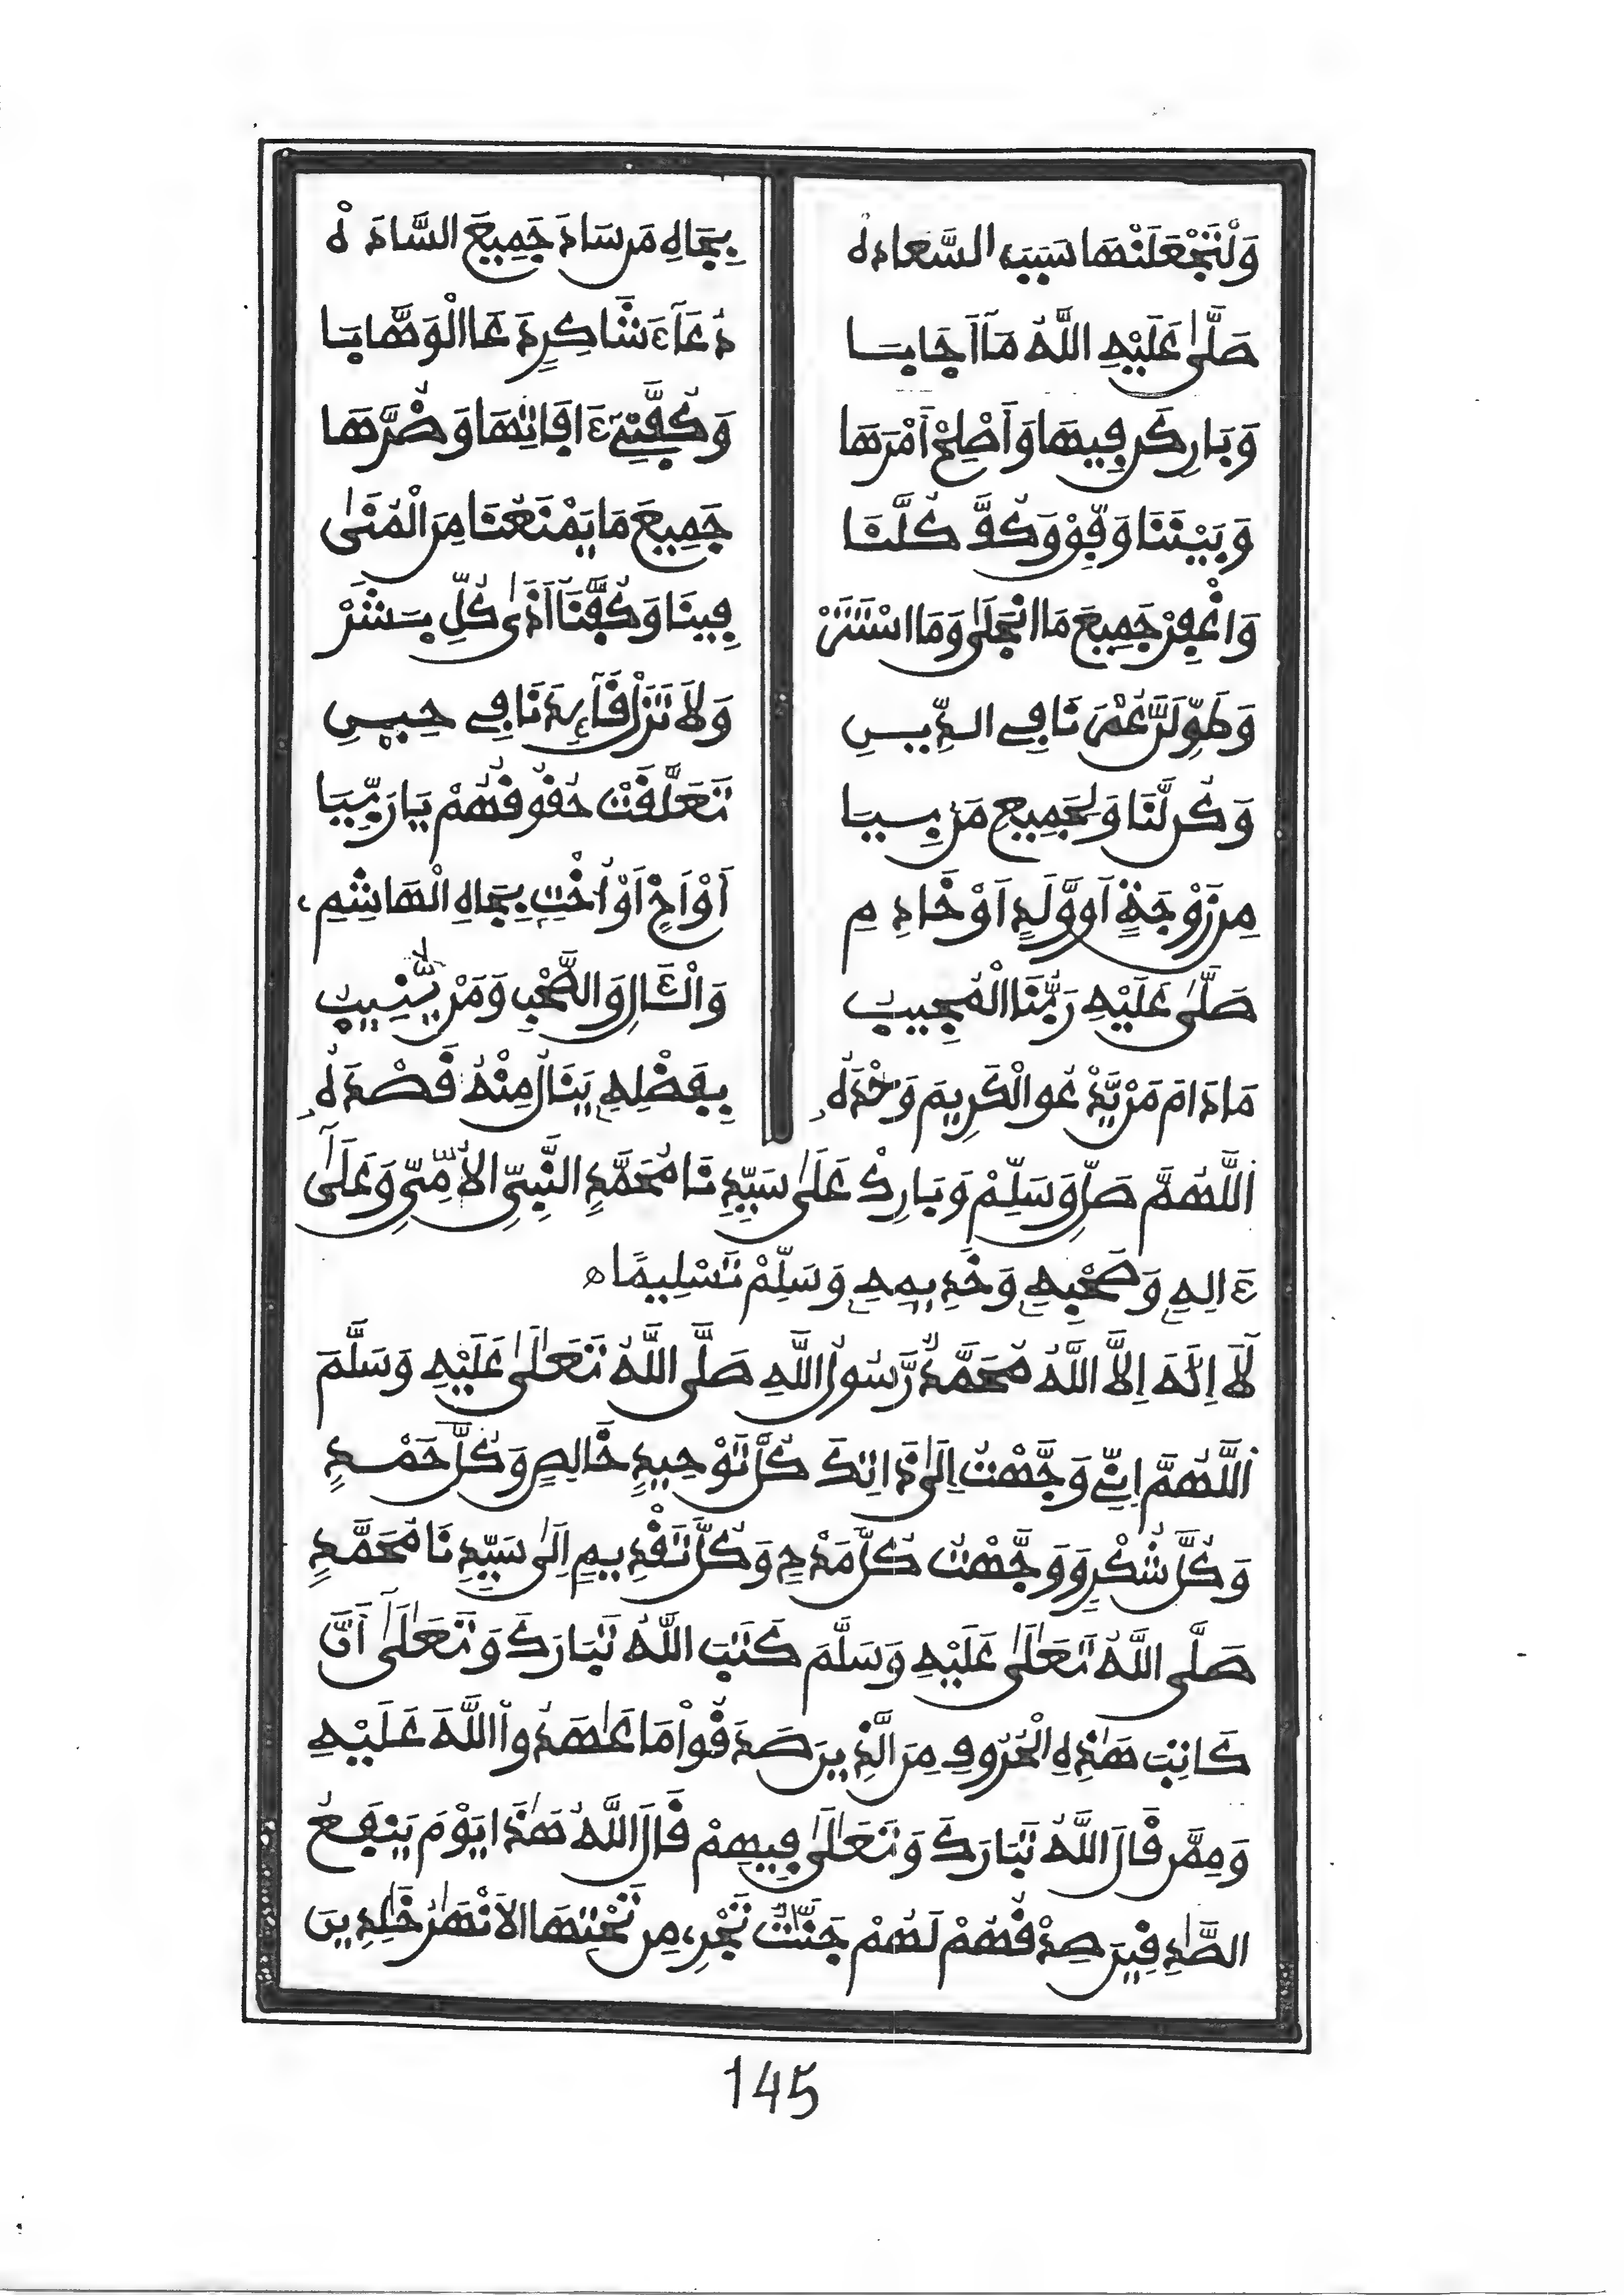 وَلْتَجْعَلَنْهَا سَبَبَ السَّعَادَهْ بِجَاهِ مَن سَادَ جَمِيعَ السَّادَهْ
صَلَّىٰ عَلَيْهِ اللَّهُ مَآ أَجَابَا دُعَآءَ شَاكِرٍ دَعَا الْوَهَّابَا
وَبَارِكَن فِيهَا وَأَصْلِحْ أَمْرَهَا وَكُفَّنِےٓ ءَافَاتِهَا وَضُرَّهَا
وَبَيْنَنَا وَفِّقْ وَكُفَّ كُلَّنَا جَمِيعَ مَا يَمْنَعُنَا مِنَ الْمُنَىٰ
وَاغْفِرْ جَمِيعَ مَا انْجَلَىٰ وَمَا اسْتَتَرْ فِينَا وَكُفَّنَآ أَذَىٰ كُلِّ بَشَرْ
وَطَوِّلَنَّ عُمْرَنَا فِے الدِّينِ وَلَا تَزَلْ قَآئِدَنَا فِے حِينِ
وَكُن لَّنَا وَلِجَمِيعِ مَن بِيَا تَعَلَّقَتْ حُقُوقُهُمْ يَا رَبِّيَا
مِن زَوْجَةٍ أَوْ وَّلَدٍ أَوْ خَادِمِ أَوْ أَخٍ أَوْ أُخْتٍ بِجَاهِ الْهَاشِمِے
صَلَّىٰ عَلَيْهِ رَبُّنَا الْمُجِيبُ وَالْـَٔالِ وَالصَّحْبِ وَمَنْ يُّنِيبُ
مَا دَامَ مَنْ يَّدْعُو الْكَرِيمَ وَحْدَهُ بِفَضْلِهِ يَنَالُ مِنْهُ قَصْدَهُ
اَللَّهُمَّ صَلِّ وَسَلِّمْ وَبَارِكْ عَلَىٰ سَيِّدِنَا مُحَمَّدٍ النَّبِيِّ الْأُمِّيِّ وَعَلَىٰٓ
ءَالِهِ وَصَحْبِهِ وَخَدِيمِهِ وَسَلِّمْ تَسْلِيمًا ه
لَآ إِلَٰهَ إِلَّا اللَّهُ مُحَمَّدٌ رَّسُولُ اللَّهِ صَلَّى اللَّهُ تَعَالَىٰ عَلَيْهِ وَسَلَّمَ
اَللَّهُمَّ إِنِّے وَجَّهْتُ إِلَىٰ ذَاتِكَ كُلَّ تَوْحِيدٍ خَالِصٍ وَكُلَّ حَمْدٍ
وَكُلَّ شُكْرٍ وَوَجَّهْتُ كُلَّ مَدْحٍ وَكُلَّ تَقْدِيمٍ إِلَىٰ سَيِّدِنَا مُحَمَّدٍ
صَلَّى اللَّهُ تَعَالَىٰ عَلَيْهِ وَسَلَّمَ كَتَبَ اللَّهُ تَبَارَكَ وَتَعَالَىٰٓ أَنَّ
كَاتِبَ هَٰذِهِ الْحُرُوفِ مِنَ الَّذِينَ صَدَقُواْ مَا عَٰهَدُواْ اللَّهَ عَلَيْهِ
وَمِمَّن قَالَ اللَّهُ تَبَارَكَ وَتَعَالَىٰ فِيهِمْ قَالَ اللَّهُ هَٰذَا يَوْمَ يَنفَعُ
الصَّٰدِقِينَ صِدْقُهُمْ لَهُمْ جَنَّٰتٌ تَجْرِے مِن تَحْتِهَا الْأَنْهَٰرُ خَٰلِدِينَ
145